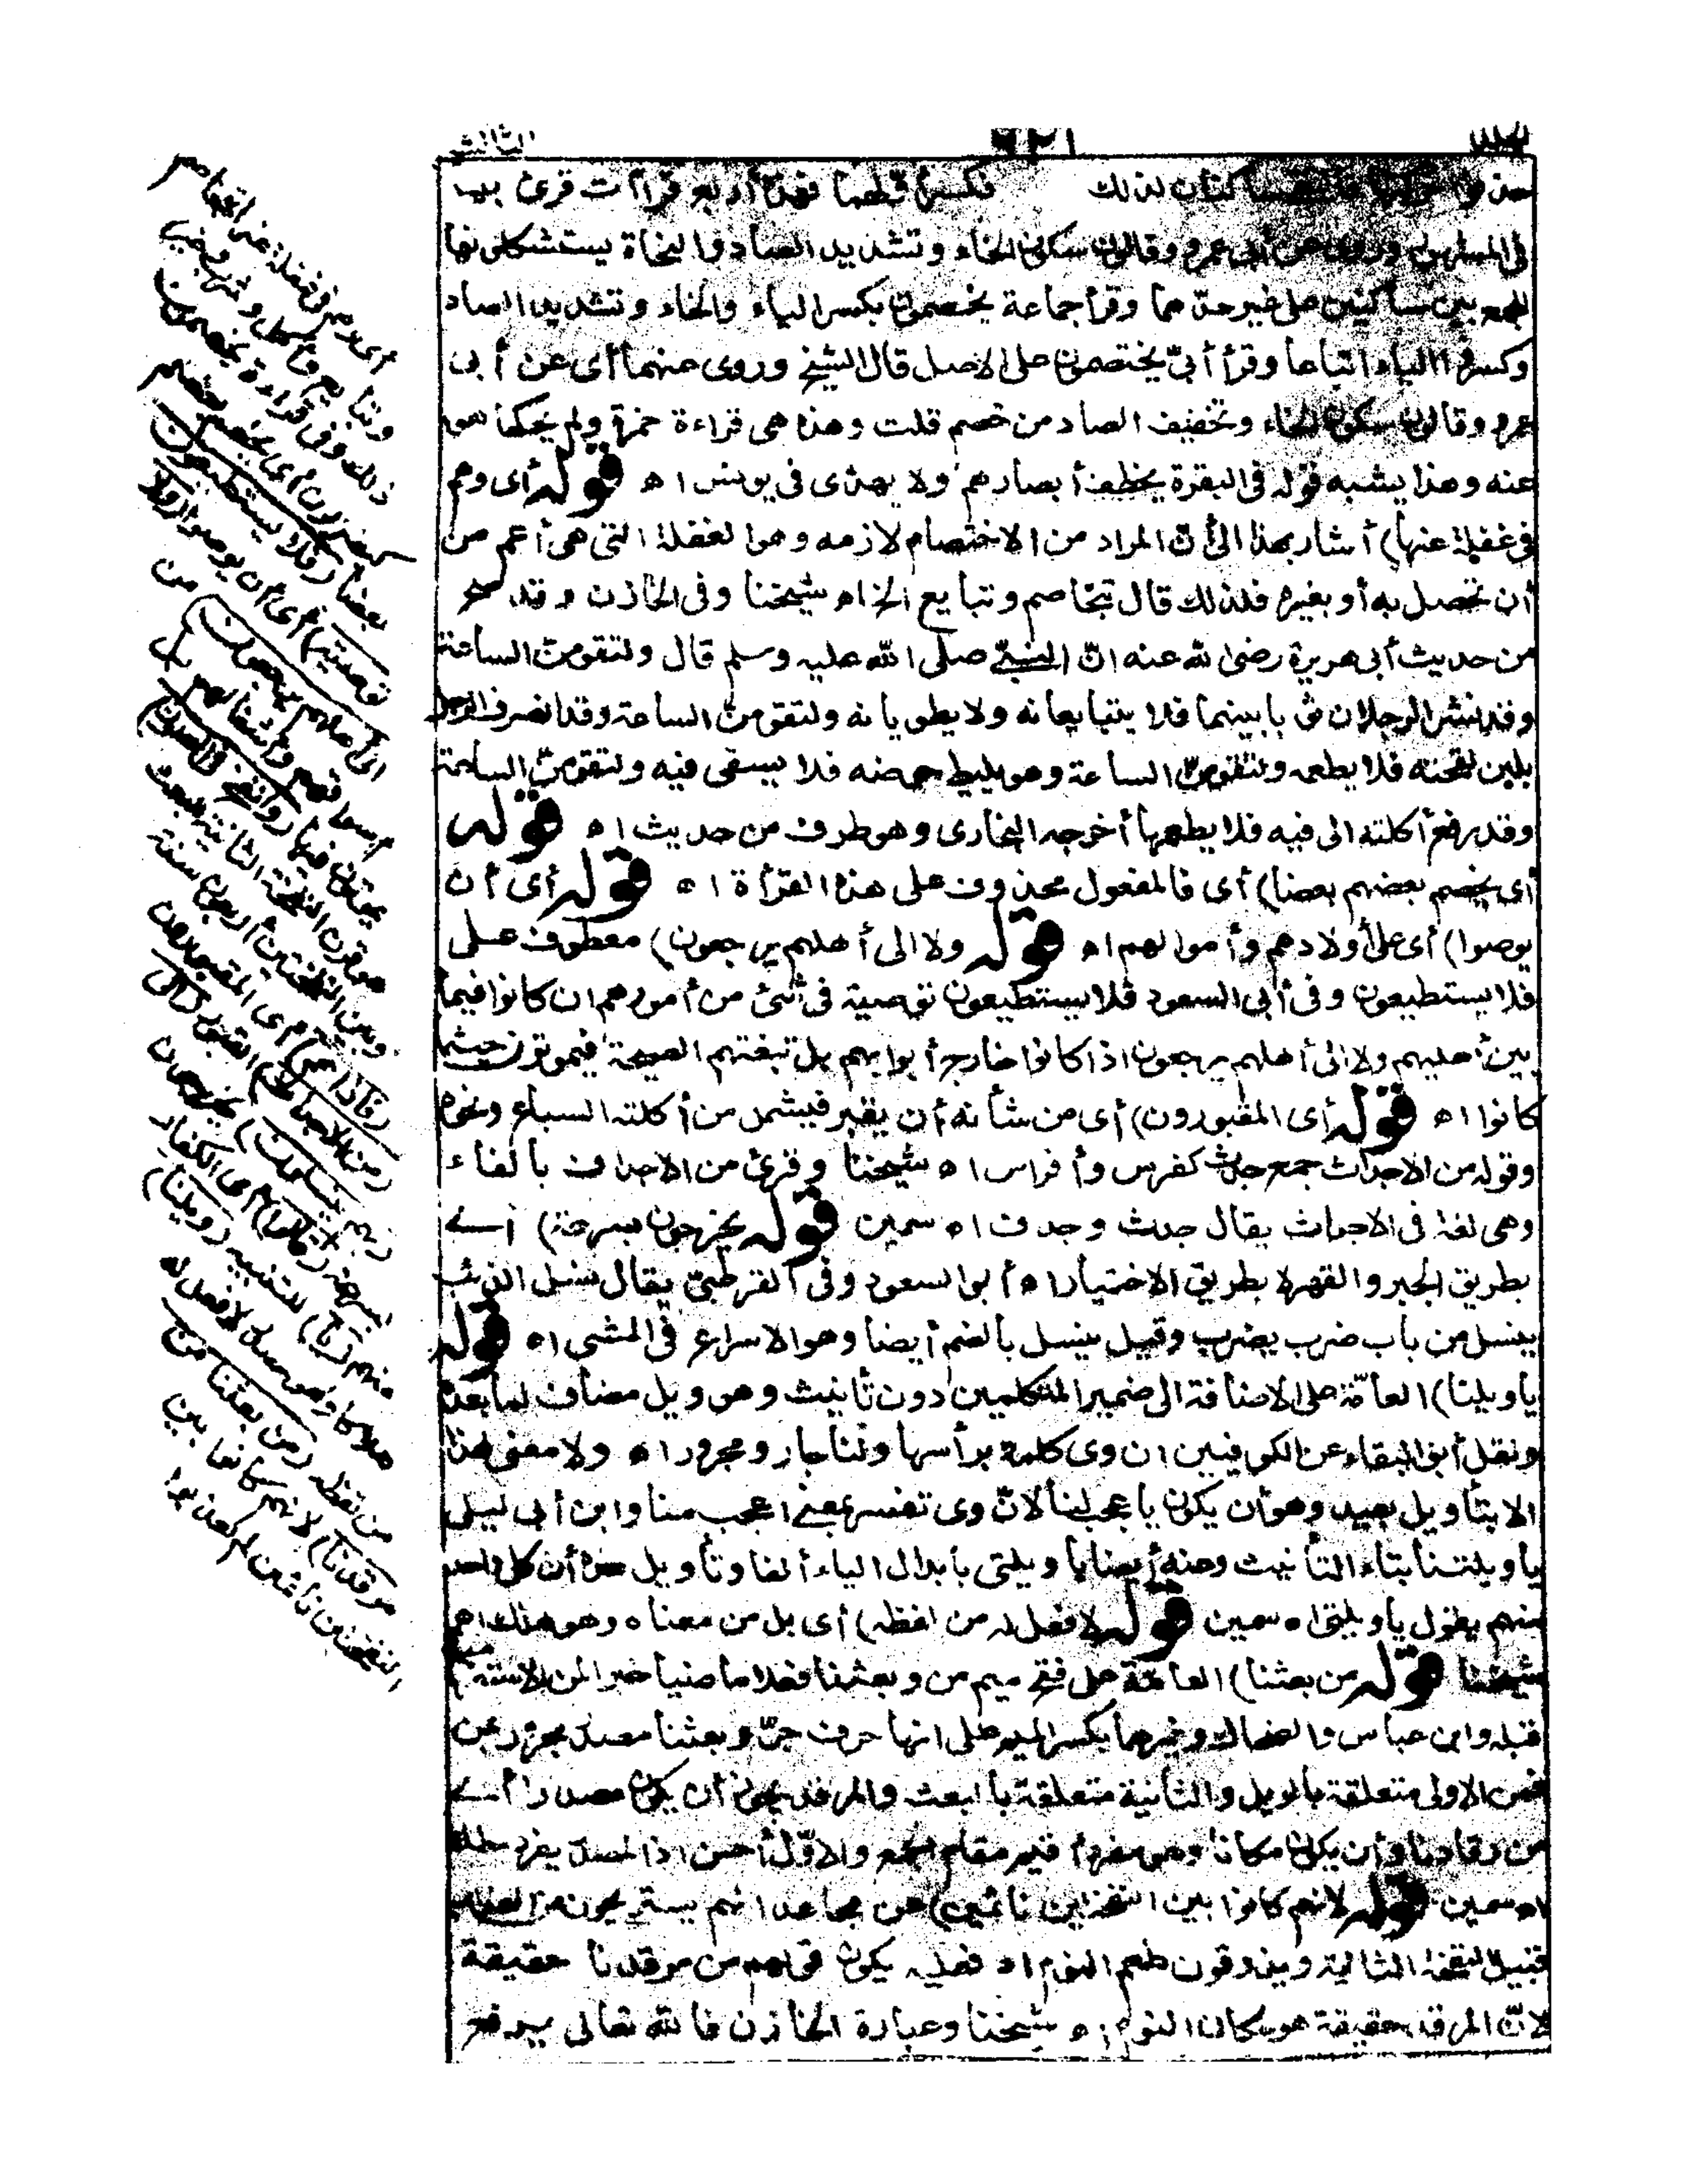 المجلد
٤٢١
الثالث
فكسرت لذلك فهذه أربع قراآت قرئ بها
فى المشهور وروى عن أبى عمرو وقالون سكون الخاء وتشديد الصاد والنحاة يستشكلونها
للجمع بين ساكنين على غير حدّهما وقرأ جماعة يخصمون بكسر الياء والخاء وتشديد الصاد
وكسروا الياء اتباعا وقرأ أبىّ يختصمون على الاصل قال الشيخ وروى عنهما أى عن أبى
عمرو وقالون سكون الخاء وتخفيف الصاد من خصم قلت وهذه هى قراءة حمزة ولم يحكها هو
عنه وهذا يشبه قوله فى البقرة يخطف أبصارهم ولا يهدّى فى يونس اه قوله أى وهم
فى غفلة عنها) أشار بهذا الى أنّ المراد من الاختصام لازمه وهو الغفلة التى هى أعم من
أن تحصل به أو بغيره فلذلك قال بتخاصم وتبايع الخ اه شيخنا وفى الخازن وقد صح
من حديث أبى هريرة رضى الله عنه انّ النبىّ صلى الله عليه وسلم قال ولتقومنّ الساعة
وقد نشر الرجلان ثوبا بينهما فلا يتبايعانه ولا يطويانه ولتقومنّ الساعة وقد انصرف الرجل
بلبن لقحته فلا يطعمه ولتقومنّ الساعة وهو يليط حوضه فلا يسقى فيه ولتقومنّ الساعة
وقد رفع أكلته الى فيه فلا يطعمها أخرجه البخارى وهو طرف من حديث اه قوله
أى يخصم بعضهم بعضا) أى فالمفعول محذوف على هذه القرأة اه قوله أى أن
يوصوا) أى على أولادهم وأموالهم اه قوله ولا الى أهلهم يرجعون) معطوف على
فلا يستطيعون وفى أبى السعود فلا يستطيعون توصية فى شئ من أمورهم ان كانوا فيما
بين أهليهم ولا الى أهلهم يرجعون اذا كانوا خارج أبوابهم بل تبغتهم الصيحة فيموتون حيثما
كانوا اه قوله أى المقبورون) أى من شأنه أن يقبر فيشمل من أكلته السباع ونحوه
وقوله من الاجداث جمع جدث كفرس وأفراس اه شيخنا وقرئ من الاجداف بالفاء
وهى لغة فى الاجداث يقال جدث وجدف اه سمين قوله يخرجون بسرعة) أى
بطريق الجبر والقهر لا بطريق الاختيار اه أبو السعود وفى القرطبىّ يقال نسل الذئب
ينسل من باب ضرب يضرب وقيل ينسل بالضم أيضا وهو الاسراع فى المشى اه قوله
يا ويلنا) العامّة على الاضافة الى ضمير المتكلمين دون تأنيث وهو ويل مضاف لما بعده
ونقل أبو البقاء عن الكوفيين ان وى كلمة برأسها ولنا جار ومجرور اه ولا معنى لهذا
الا بتأويل بعيد وهو أن يكون يا عجب لنا لانّ وى تفسر بمعنى اعجب منا وابن أبى ليلى
يا ويلتنا بتاء التأنيث وعنه أيضا يا ويلتى بابدال الياء ألفا وتأويل هذه أن كل واحد
منهم يقول يا ويلتى اه سمين قوله لا فعل له من لفظه) أى بل من معناه وهو هلك اه
شيخنا قوله من بعثنا) العامّة على فتح ميم من وبعثنا فعلا ماضيا خبرا لمن الاستفهامية
قبله وابن عباس والضحاك وغيرهما بكسر الميم على انها حرف جرّ وبعثنا مصدر مجرور بمن
فمن الاولى متعلقة بالويل والثانية متعلقة بالبعث والمرقد يجوز أن يكون مصدرا أى
من رقادنا وأن يكون مكانا وهو مفرد أقيم مقام الجمع والاوّل أحسن اذ المصدر يفرد مطلقا
اه سمين قوله لانهم كانوا بين النفختين نائمين) عن مجاهد انهم يستريحون من العذاب
قبيل النفخة الثانية ويذوقون طعم النوم اه فعليه يكون قولهم من مرقدنا حقيقة
لانّ المرقد حقيقة هو مكان النوم اه شيخنا وعبارة الخازن فالله تعالى يرفع
أى وهم فى غفلة عنها بتخاصم
وتبايع وأكل وشرب وغير
ذلك وفى قراءة يخصمون
كيضربون أى يخصم بعضهم
بعضا (فلا يستطيعون
توصية) أى أن يوصوا (ولا
الى أهلهم يرجعون) من
أسواقهم وأشغالهم بل
يموتون فيها (ونفخ فى الصور)
هو قرن النفخة الثانية للبعث
وبين النفختين أربعون سنة
(فاذا هم) أى المقبورون
(من الاجداث) القبور (الى
ربهم ينسلون) يخرجون
بسرعة (قالوا) أى الكفار
منهم (يا) للتنبيه (ويلنا)
هلاكنا وهو مصدر لا فعل له
من لفظه (من بعثنا من
مرقدنا) لانهم كانوا بين
النفختين نائمين لم يعذبوا